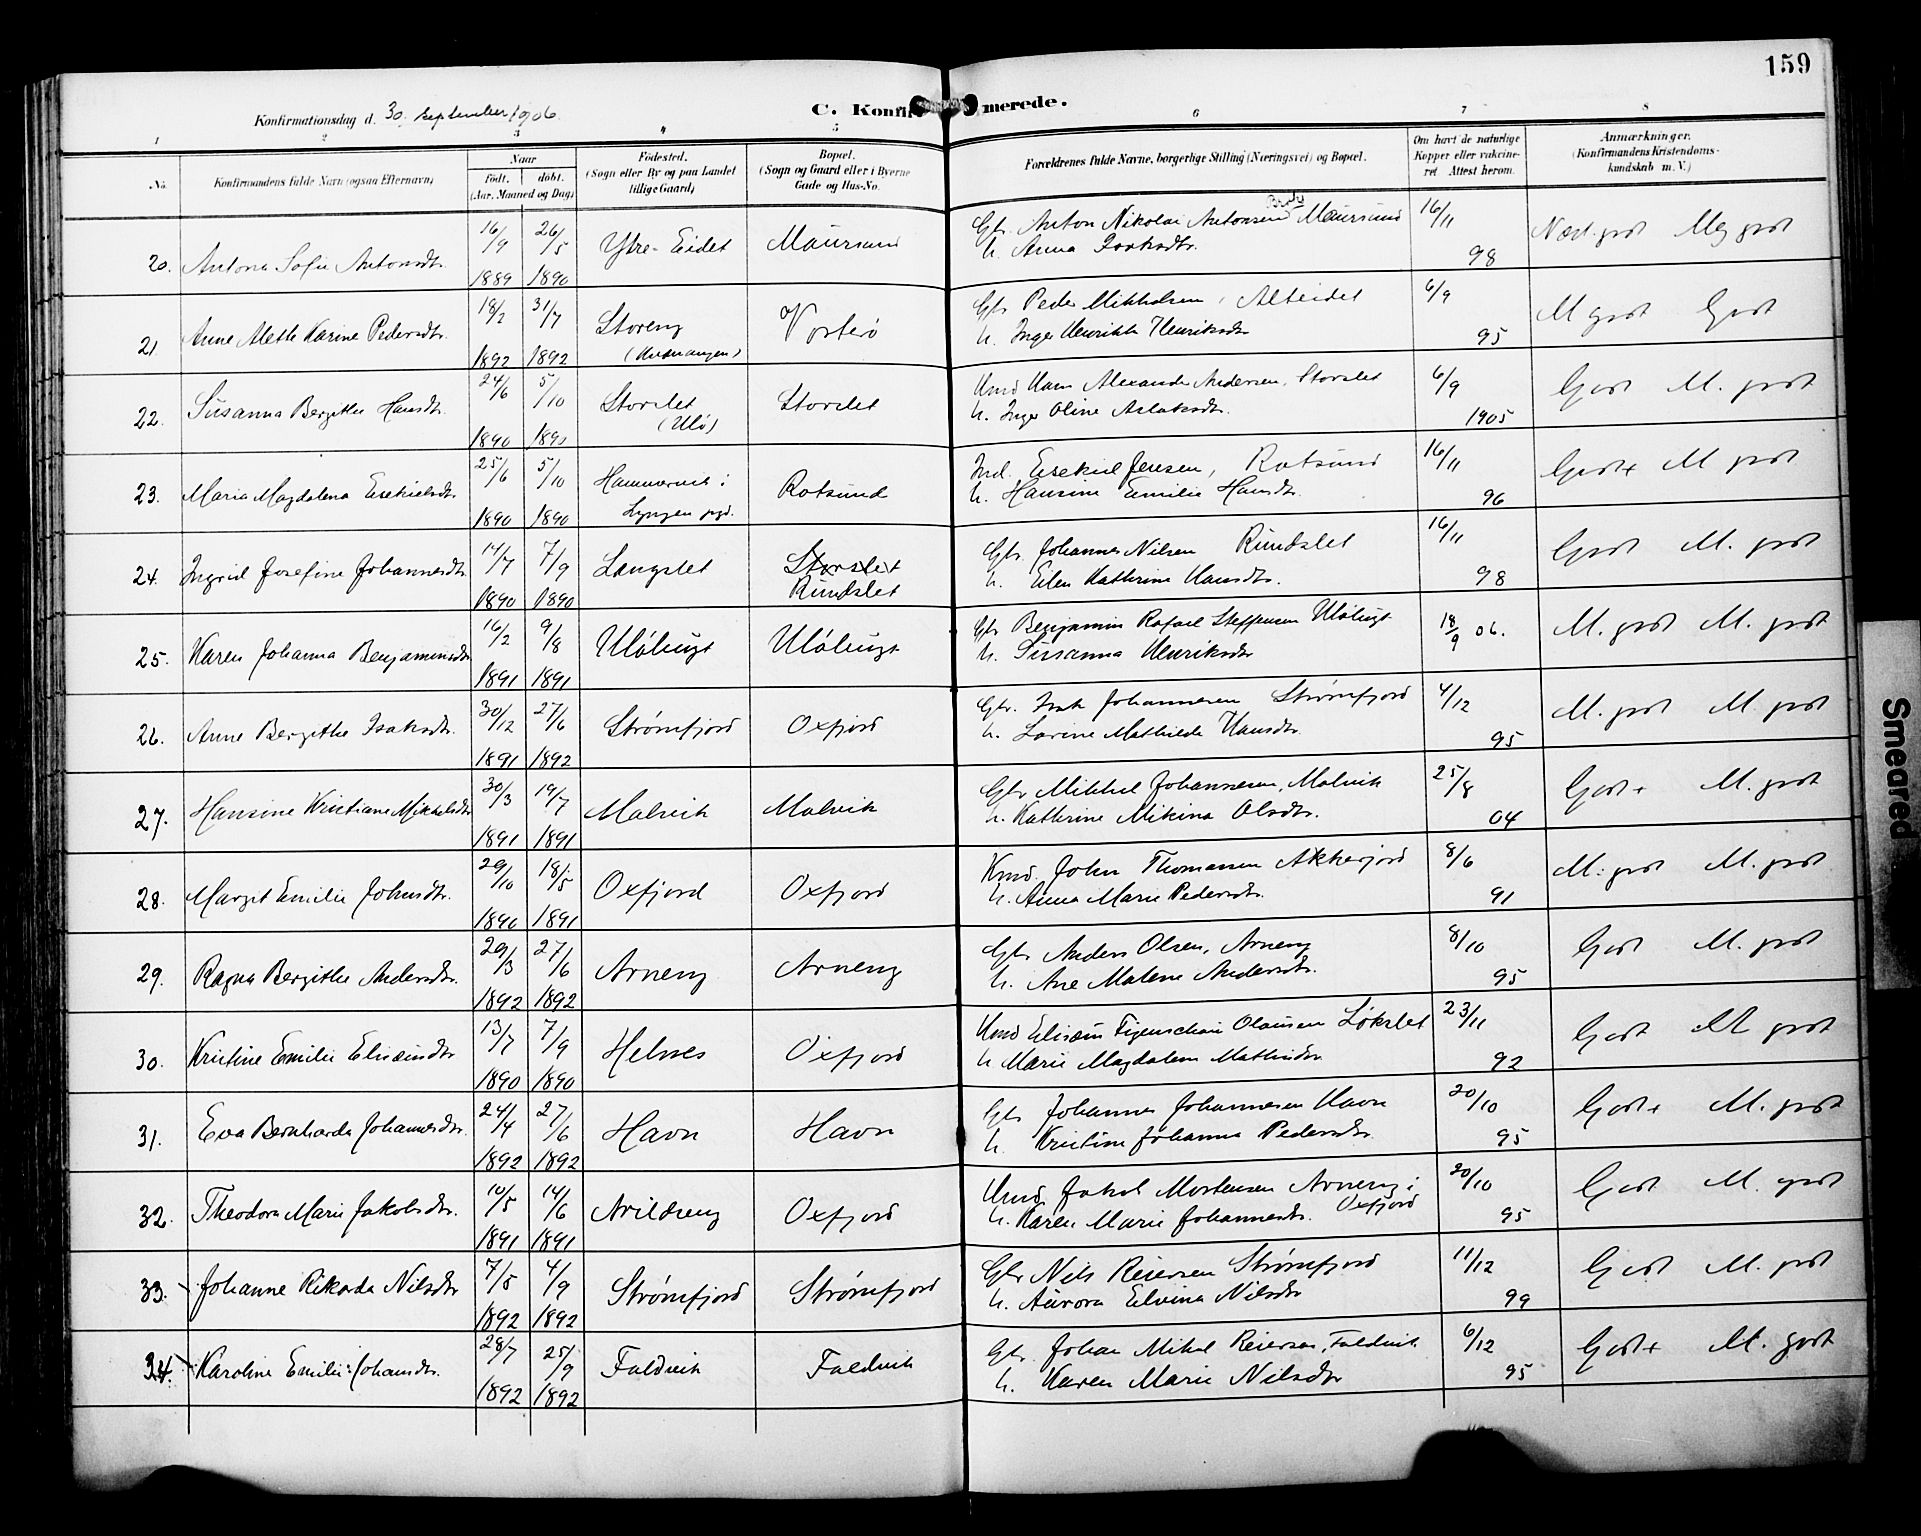 159
Konfirmationsdag d. 30. september 1906.
C. Konfirmerede.
1 2 3 4 5 6 7 8
No.
Konfirmandens fulde Navn (ogsaa Efternavn)
Naar
Født. døbt.
(Aar. Maaned og Dag)
Fødested.
(Sogn eller By og paa Landet
tillige Gaard)
Bopæl.
(Sogn og Gaard eller i Byerne
Gade og Hus-No.
Forældrenes fulde Navne, borgerlige Stilling (Næringsvei) og Bopæl.
Om havt de naturlige
Kopper eller vakcine-
ret Attest herom.
Anmærkninger.
(Konfirmandens Kristendoms-
kundskab m. V.)
20. Antona Sofie Antonsdtr. 16/9 1889 26/5 1890 Ytre-Eidet Maursund
Gbr. Anton Nikolai Antonsen Maursund
h. Anna Isaksdtr.
16/11 98 Næst. godt Meg godt
21. Anne Meth Karine Pedersdtr. 18/2 1892 31/7 1892 Storeng
(Kvænangen) Vorterø
Gbr. Peder Mikkelsen, Alteidet
h. Inger Henrikke Henriksdtr
6/9 95 M godt Godt
22. Susanna Bergithe Hansdtr. 24/6 1890 5/10 1890 Storslet
(Ulø) Storslet
Kmd Hans Alexander Andersen, Storslet
h. Inger Oline Aslaksdtr.
6/9 1905 Godt M. godt
23. Maria Magdalena Esekielsdtr. 25/6 1890 5/10 1890 Hammervik i
Lyngen pgd. Rotsund
Ind. Esekiel Jensen, Rotsund
h. Hansine Emilie Hansdtr.
16/11 96 Godt+ M godt
24. Ingrid Josefine Johannesdtr. 14/7 1890 7/9 1890 Langslet Storslet
Rundslet
Gbr. Johannes Nilsen Rundslet
h. Elen Kathrine Hansdtr.
16/11 98 Godt M. godt
25. Karen Johanna Benjaminsdtr. 16/2 1891 9/8 1891 Uløbugt Uløbugt
Gbr Benjamin Rafael Steffensen Uløbugt
h. Susanna Henriksdtr
18/9 06. M. godt M. godt
26. Anne Bergithe Isaksdtr. 30/12 1891 27/6 1892 Strømfjord Oxfjord
Gbr. Isak Johannesen Strømfjord
h. Lovine Mathilde Hansdtr.
4/12 95 M. godt M. godt
27. Hansine Kristiane Mikkelsdtr 30/3 1891 19/7 1891 Malvik Malvik
Gbr Mikkel Johannesen, Malvik
h. Kathrine Mikina Olsdtr.
25/8 04 Godt+ M. godt
28. Margit Emilie Johnsdtr. 29/10 1890 18/5 1891 Oxfjord Oxfjord
Kmd. John Thomassen Akkarfjord
h. Anna Marie Pedersdtr.
8/6 91 M. godt M. godt
29. Ragna Bergithe Andersdtr. 29/3 1892 27/6 1892 Arneng Arneng
Gbr Anders Olsen, Arneng
h. Ane Malene Andersdtr.
8/10 95 Godt M. godt
30. Kristine Emilie Eliseusdtr 13/7 1890 7/9 1890 Helnes Oxfjord
Kmd Eliseus Figenschau Olausen Løkslet
h Marie Magdalena Mathisdtr
23/11 92 Godt M godt
31. Eva Bernharda Johannesdtr. 24/4 1892 27/6 1892 Havn Havn
Gbr Johannes Johannesen Havn
h. Kristine Johanna Pedersdtr.
20/10 95 Godt+ M. godt
32. Theodora Marie Jakobsdtr. 10/5 1891 14/6 1891 Arildseng Oxfjord
Kmd. Jakob Mortensen Arneng i
h. Karen Marie Johannesdtr. Oxfjord
20/10 95 Godt M. godt
33. Johanne Rikarda Nilsdtr 7/5 1892 4/9 1892 Strømfjord Strømfjord
Gbr Nils Reiersen Strømfjord
h. Aurora Elvina Nilsdtr
11/12 99 Godt M. godt
34. Karoline Emilie Johansdtr. 28/7 1892 25/9 1892 Faldvik Faldvik
Gbr. Johan Mikal Reiersen, Faldvik
h. Karen Marie Nilsdtr
6/12 95 Godt+ M. godt
Smeared